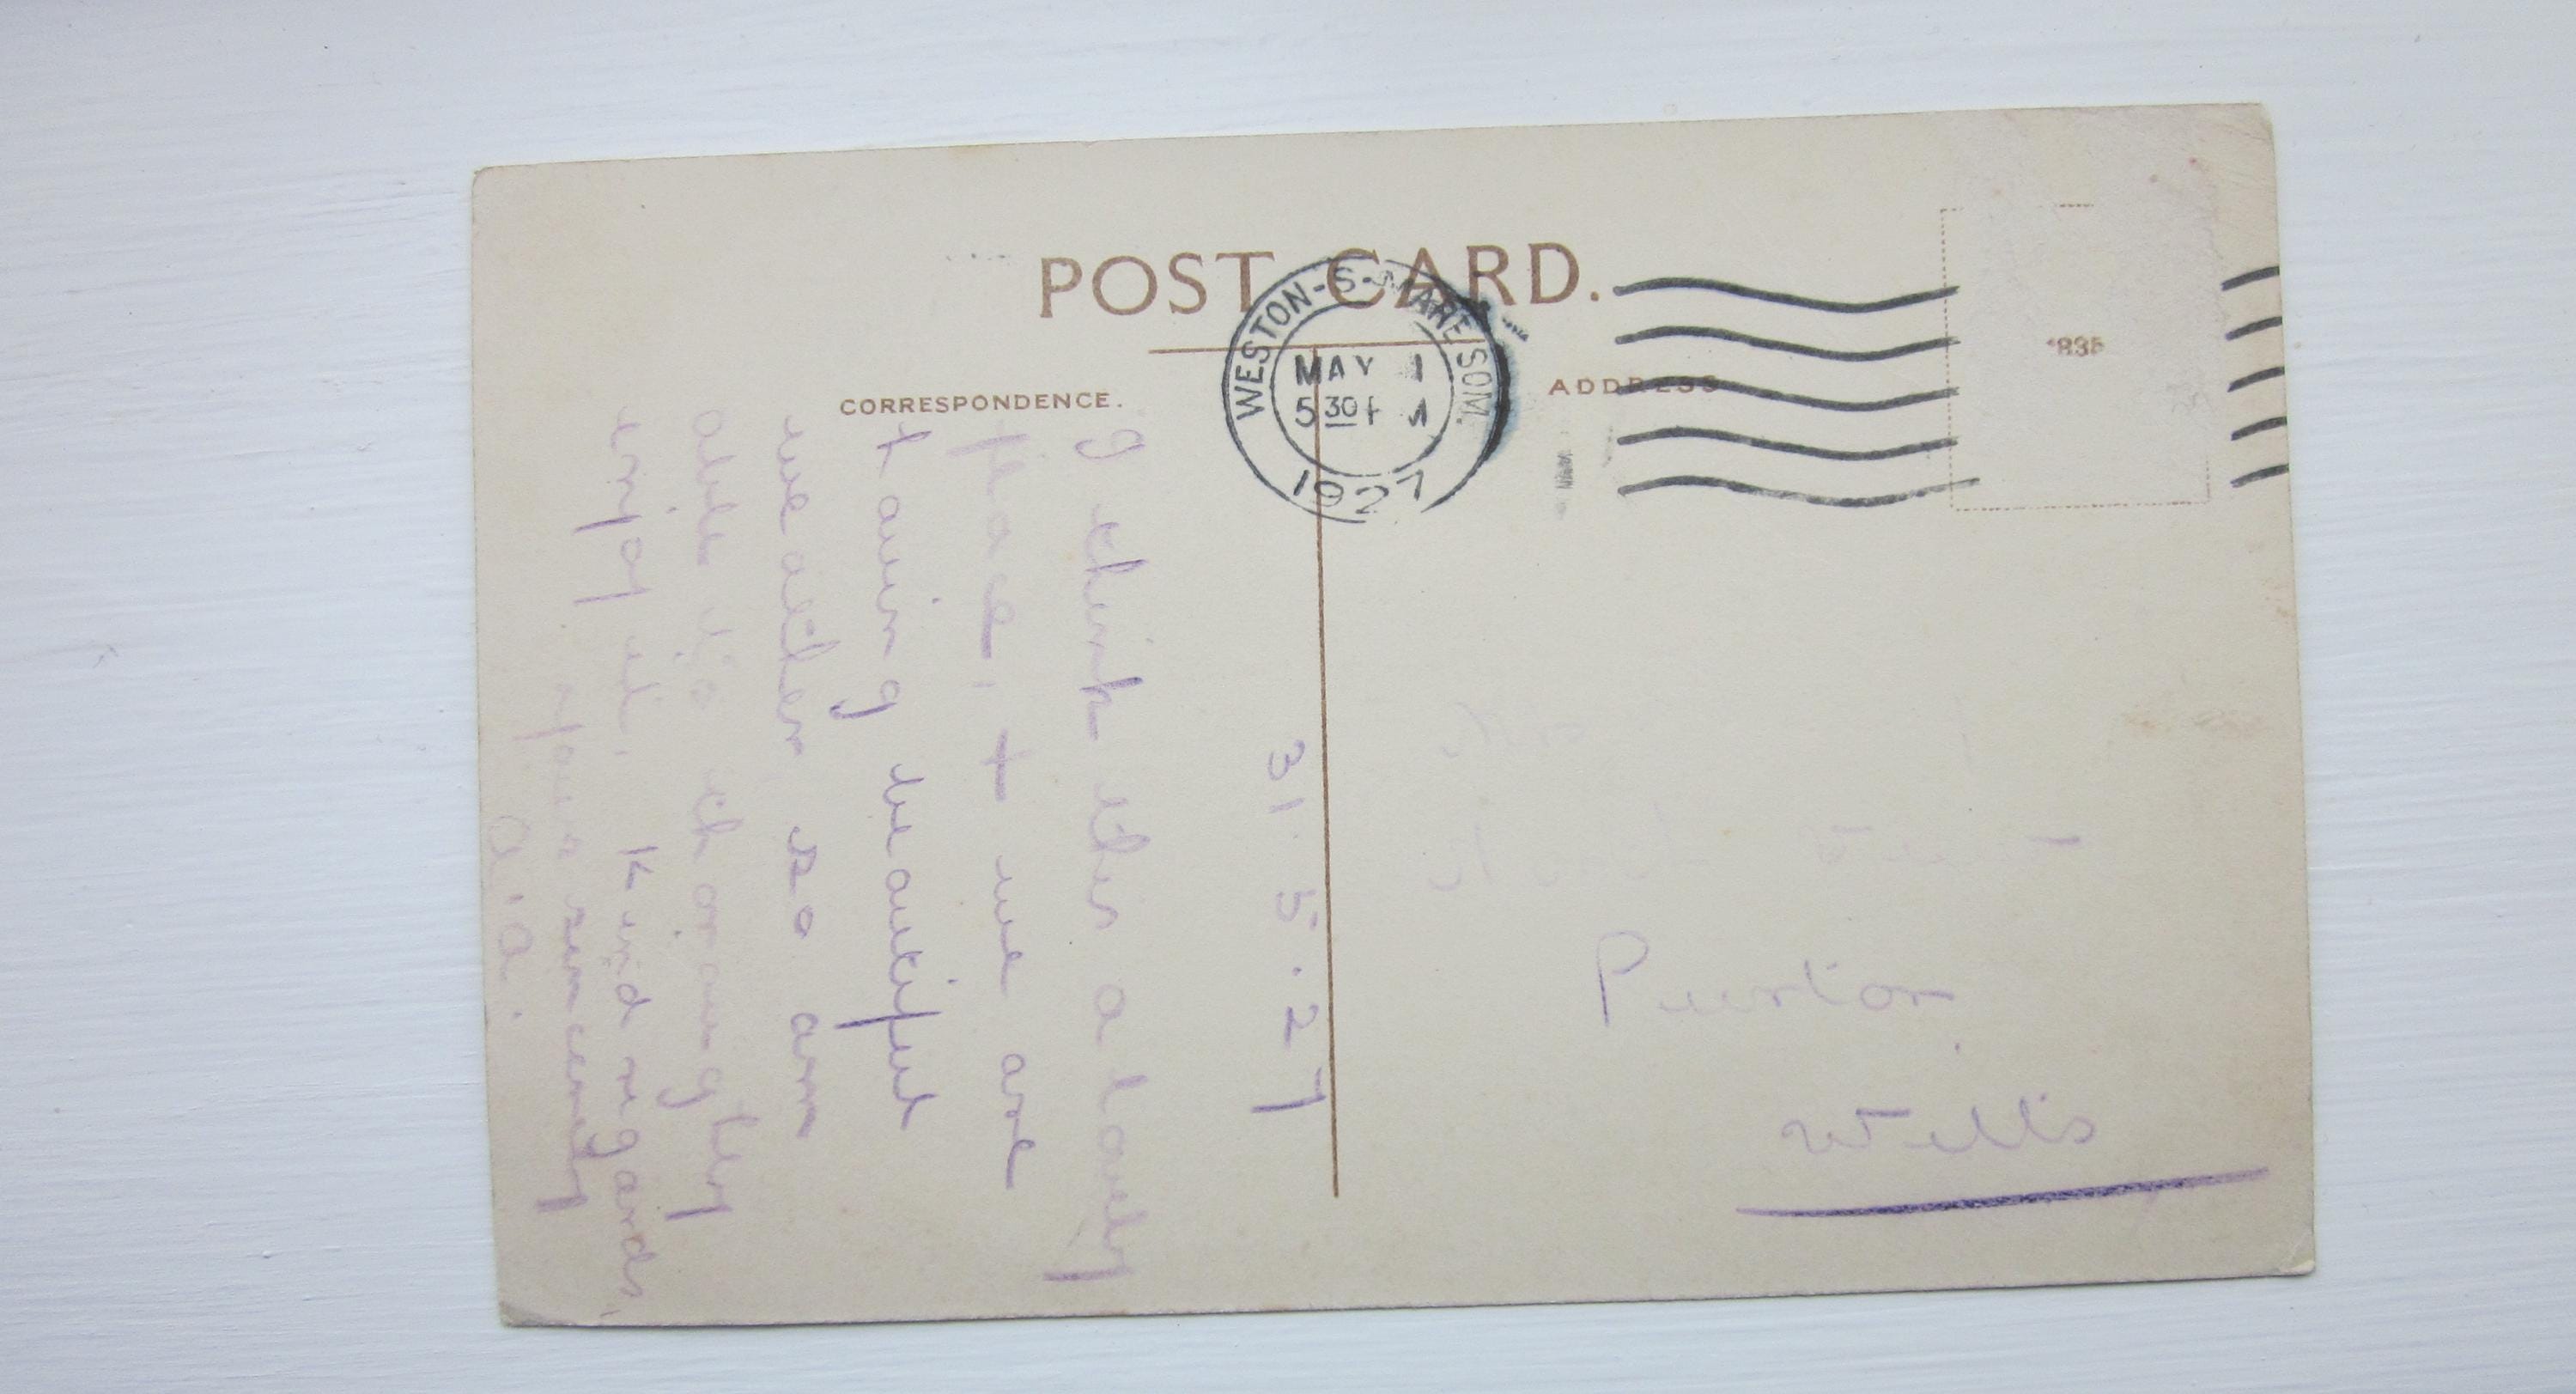 POST CARD.
WESTON-S-MARE SOM.
MAY 1
5 30 P M
1927
CORRESPONDENCE.
ADDRESS
1835
31.5.27
I think this a lovely
place, + we are
having beautiful
weather so am
able to thoroughly
enjoy it, Kind regards,
yours sincerely
a.a.
Purton
Wilts